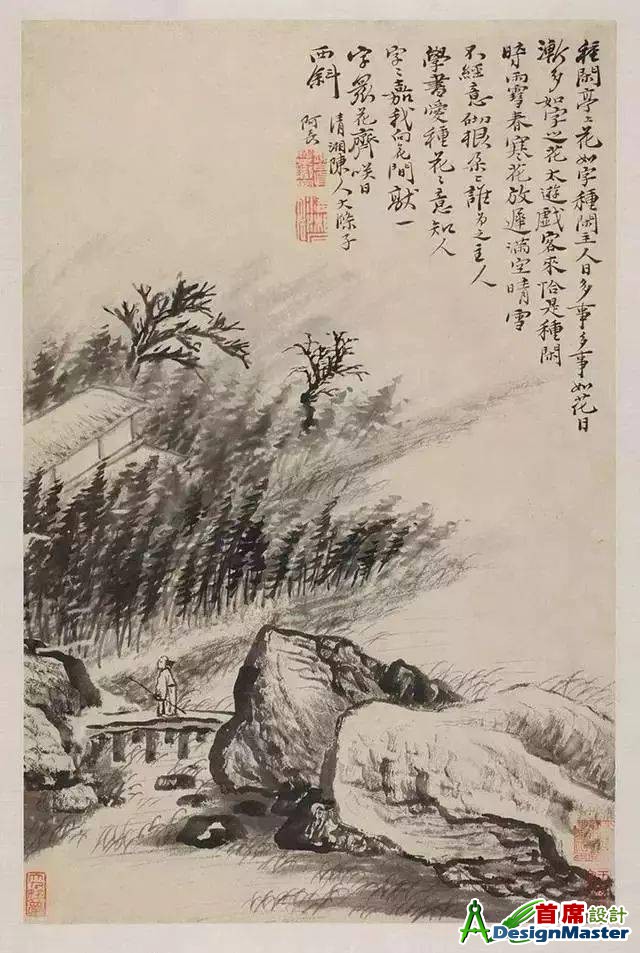 種閑亭上花如字種閑主人日多事多事如花日
漸多如字之花太遊戲客來恰是種閑
時雨雪春寒花放遲滿空晴雪
不經意砌根朵〻誰為之主人
學書愛種花〻意知人
字〻嘉我向花間獻一
字眾花齊咲日
西斜
清湘陳人大滌子
阿長
首席設計
ADesignMaster